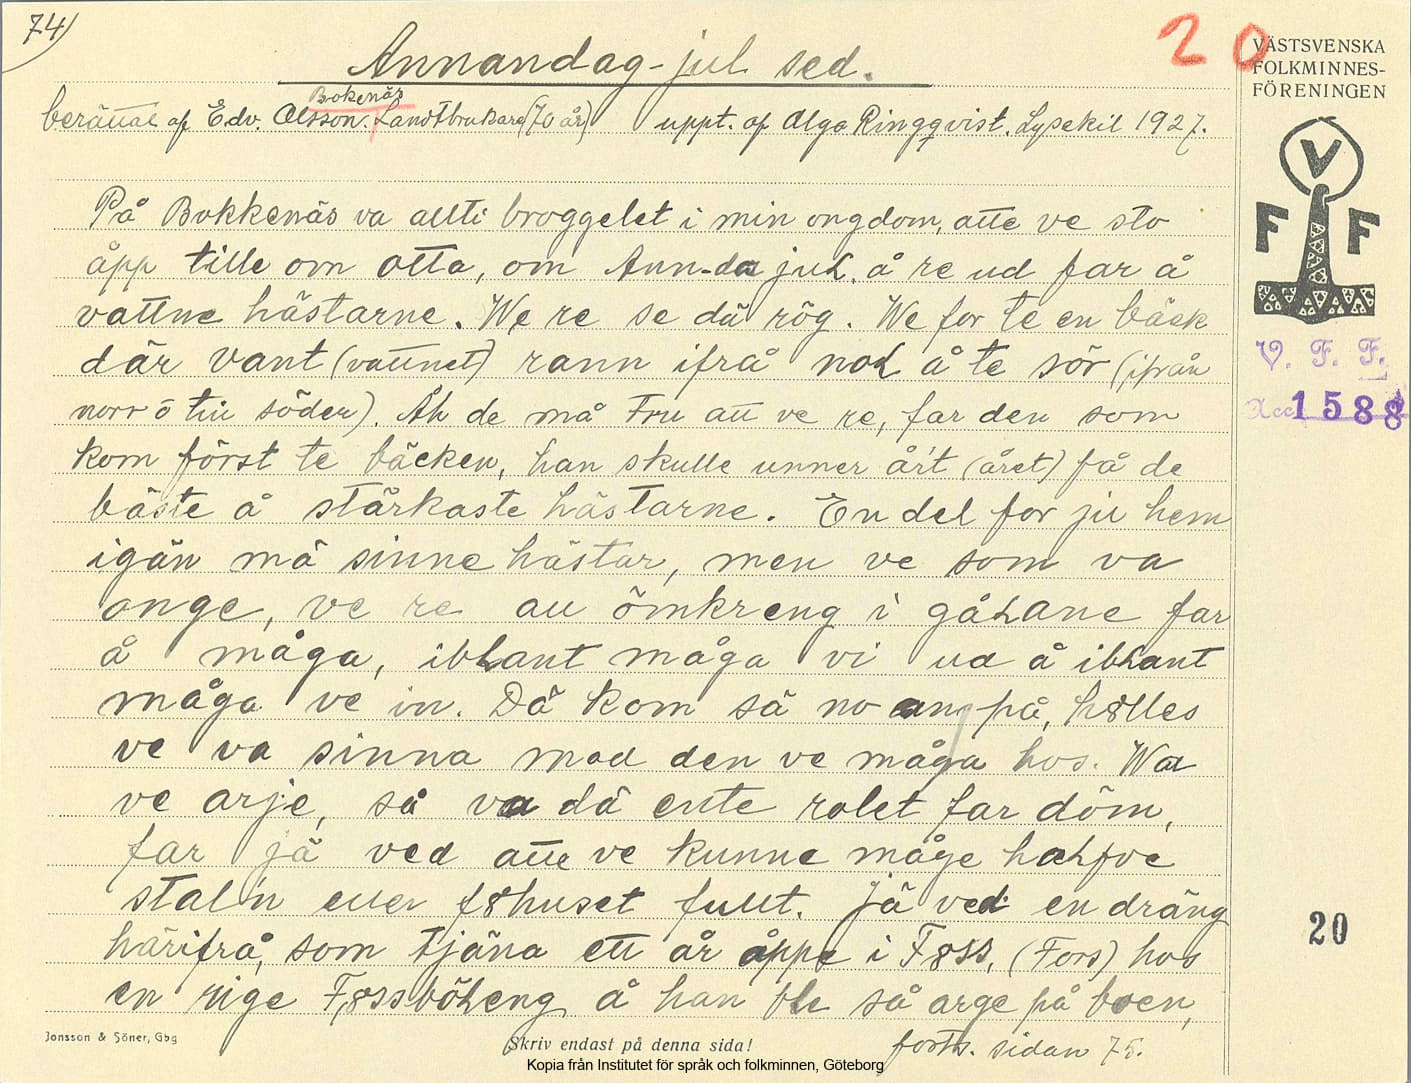 74)
Annandag-jul sed.
20
VÄSTSVENSKA
FOLKMINNES-
FÖRENINGEN
Bokenäs
berättat af Edv. Olsson. Landtbrukare (70 år) uppt. af Olga Ringqvist. Lysekil 1927.
V
F F
På Bokkenäs va allti broggelet i min ongdom, atte ve sto
åpp tille om otta, om Ann-da jul. å re ud far å
vattne hästarne. We re se dä rög. We for te en bäck
där vant (vattnet) rann ifrå nol å te sör (ifrån
norr ö till söder). Åh de må Tru att ve re, far den som
kom först te bäcken, han skulle unner år't (året) få de
bäste å stärkaste hästarne. En del for ju hem
igän mä sinne hästar, men ve som va
onge, ve re au ömkreng i gåLane far
å måga, ibLant måga vi ud å ibLant
måga ve in. Dä kom sä no an på, h8lles
ve va sinna mod den ve måga hos. Wa
ve arje, så va dä ente rolet far döm,
far jä ved atte ve kunne måge haLfve
stal'n eller f8huset fullt. Jä ved en dräng
härifrå, som tjäna ett år åppe i F8ss, (Fors) hos
en rige F8ssböLeng å han ble så arge på boen,
forts. sidan 75.
V. F. F.
Acc 1588
20
Jonsson & Söner, Gbg
Skriv endast på denna sida!
Kopia från Institutet för språk och folkminnen, Göteborg